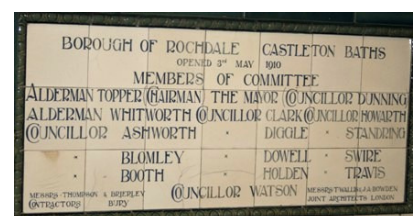 BOROUGH OF ROCHDALE CASTLETON BATHS
OPENED 3RD MAY 1910
MEMBERS OF COMMITTEE
ALDERMAN TOPPER (CHAIRMAN) THE MAYOR COUNCILLOR DUNNING
ALDERMAN WHITWORTH COUNCILLOR CLARK COUNCILLOR HOWARTH
COUNCILLOR ASHWORTH " DIGGLE " STANDRING
" BLOMLEY " DOWELL " SWIRE
" BOOTH " HOLDEN " TRAVIS
COUNCILLOR WATSON
MESSRS THOMPSON & BRIERLEY
CONTRACTORS BURY
MESSRS T. WALLIS & J.A. BOWDEN
JOINT ARCHITECTS LONDON